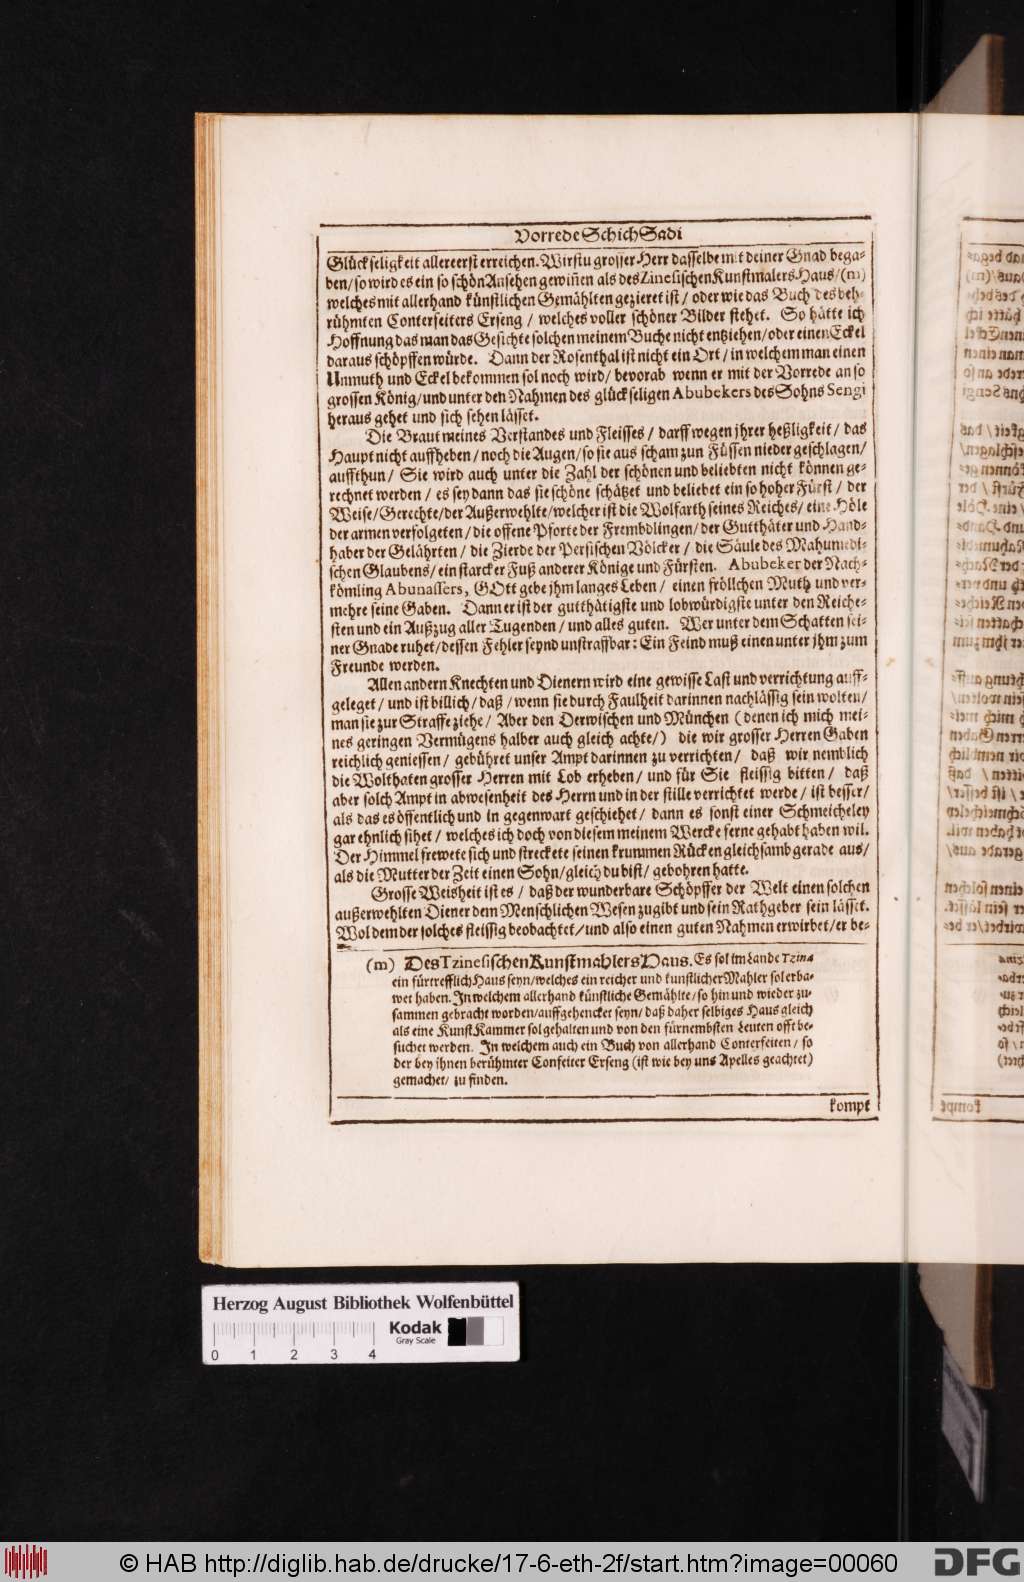 Vorrede Schich Sadi
Glückseligkeit allereerst erreichen. Wirstu grosser Herr dasselbe mit deiner Gnad bega-
ben/ so wird es ein so schön Ansehen gewiñen als des Zinesischen Kunstmalers Haus/ (m)
welches mit allerhand künstlichen Gemählten gezieret ist/ oder wie das Buch des beh-
rühmten Conterfeiters Erseng/ welches voller schöner Bilder stehet. So hätte ich
Hoffnung das man das Gesichte solchen meinem Buche nicht entziehen/ oder einen Eckel
daraus schöpffen würde. Dann der Rosenthal ist nicht ein Ort/ in welchem man einen
Unmuth und Eckel bekommen sol noch wird/ bevorab wenn er mit der Vorrede an so
grossen König/ und unter den Nahmen des glückseligen Abubekers des Sohns Sengi
heraus gehet und sich sehen lässet.
Die Braut meines Verstandes und Fleisses/ darff wegen jhrer heßligkeit/ das
Haupt nicht auffheben/ noch die Augen/ so sie aus scham zun Füssen nieder geschlagen/
auffthun/ Sie wird auch unter die Zahl der schönen und beliebten nicht können ge-
rechnet werden/ es sey dann das sie schöne schätzet und beliebet ein so hoher Fürst/ der
Weise/ Gerechte/ der Außerwehlte/ welcher ist die Wolfarth seines Reiches/ eine Höle
der armen verfolgeten/ die offene Pforte der Frembdlingen/ der Gutthäter und Hand-
haber der Gelährten/ die Zierde der Persischen Völcker/ die Säule des Mahumedi-
schen Glaubens/ ein starcker Fuß anderer Könige und Fürsten. Abubeker der Nach-
kömling Abunassers, GOtt gebe jhm langes Leben/ einen fröllchen Muth und ver-
mehre seine Gaben. Dann er ist der gutthätigste und lobwürdigste unter den Reiche-
sten und ein Außzug aller Tugenden/ und alles guten. Wer unter dem Schatten sei-
ner Gnade ruhet/ dessen Fehler seynd unstraffbar: Ein Feind muß einen unter jhm zum
Freunde werden.
Allen andern Knechten und Dienern wird eine gewisse Last und verrichtung auff-
geleget/ und ist billich/ daß/ wenn sie durch Faulheit darinnen nachlässig sein wolten/
man sie zur Straffe ziehe/ Aber den Derwischen und München (denen ich mich mei-
nes geringen Vermügens halber auch gleich achte/) die wir grosser Herren Gaben
reichlich geniessen/ gebühret unser Ampt darinnen zu verrichten/ daß wir nemblich
die Wolthaten grosser Herren mit Lob erheben/ und für Sie fleissig bitten/ daß
aber solch Ampt in abwesenheit des Herrn und in der stille verrichtet werde/ ist besser/
als das es öffentlich und in gegenwart geschiehet/ dann es sonst einer Schmeicheley
gar ehnlich sihet/ welches ich doch von diesem meinem Wercke ferne gehabt haben wil.
Der Himmel frewete sich und streckete seinen krummen Rücken gleichsamb gerade aus/
als die Mutter der Zeit einen Sohn/ gleich du bist/ gebohren hatte.
Grosse Weisheit ist es/ daß der wunderbare Schöpffer der Welt einen solchen
außerwehlten Diener dem Menschlichen Wesen zugibt und sein Rathgeber sein lässet.
Wol dem der solches fleissig beobachtet/ und also einen guten Nahmen erwirbet/ er be-
(m) Des Tzinesischen Kunstmahlers Haus. Es sol im Lande Tzina
ein fürtrefflich Haus seyn/ welches ein reicher und kunstlicher Mahler sol erba-
wet haben. In welchem allerhand künstliche Gemählte/ so hin und wieder zu-
sammen gebracht worden/ auffgehencket seyn/ daß daher selbiges Haus gleich
als eine Kunst Kammer sol gehalten und von den fürnembsten Leuten offt be-
suchet werden. In welchem auch ein Buch von allerhand Conterfeiten/ so
der bey ihnen berühmter Confeiter Erseng (ist wie bey uns Apelles geachtet)
gemachet/ zu finden.
kompt
Herzog August Bibliothek Wolfenbüttel
Kodak
Gray Scale
0 1 2 3 4
© HAB http://diglib.hab.de/drucke/17-6-eth-2f/start.htm?image=00060
DFG